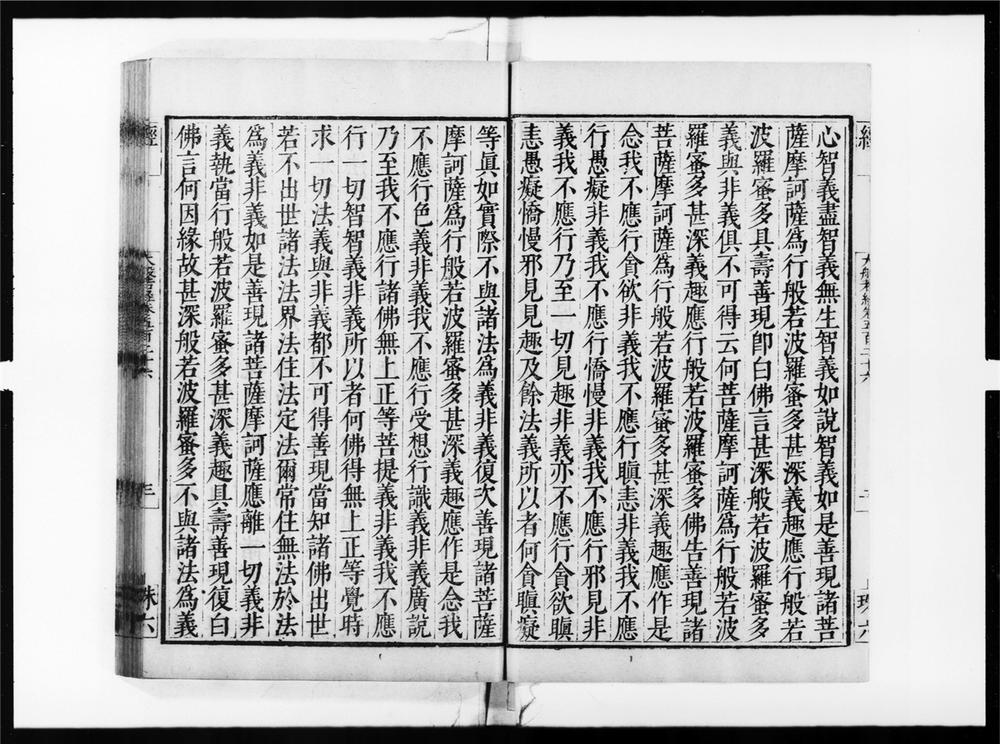 心智義盡智義無生智義如說智義如是善現諸菩
薩摩訶薩爲行般若波羅蜜多甚深義趣應行般若
波羅蜜多具壽善現卽白佛言甚深般若波羅蜜多
義與非義俱不可得云何菩薩摩訶薩爲行般若波
羅蜜多甚深義趣應行般若波羅蜜多佛告善現諸
菩薩摩訶薩爲行般若波羅蜜多甚深義趣應作是
念我不應行貪欲非義我不應行瞋恚非義我不應
行愚癡非義我不應行憍慢非義我不應行邪見非
義我不應行乃至一切見趣非義亦不應行貪欲瞋
恚愚癡憍慢邪見見趣及餘法義所以者何貪瞋癡
等眞如實際不與諸法爲義非義復次善現諸菩薩
摩訶薩爲行般若波羅蜜多甚深義趣應作是念我
不應行色義非義我不應行受想行識義非義廣說
乃至我不應行諸佛無上正等菩提義非義我不應
行一切智智義非義所以者何佛得無上正等覺時
求一切法義與非義都不可得善現當知諸佛出世
若不出世諸法法界法住法定法爾常住無法於法
爲義非義如是善現諸菩薩摩訶薩應離一切義非
義執當行般若波羅蜜多甚深義趣具壽善現復白
佛言何因緣故甚深般若波羅蜜多不與諸法爲義
經
三
珠六